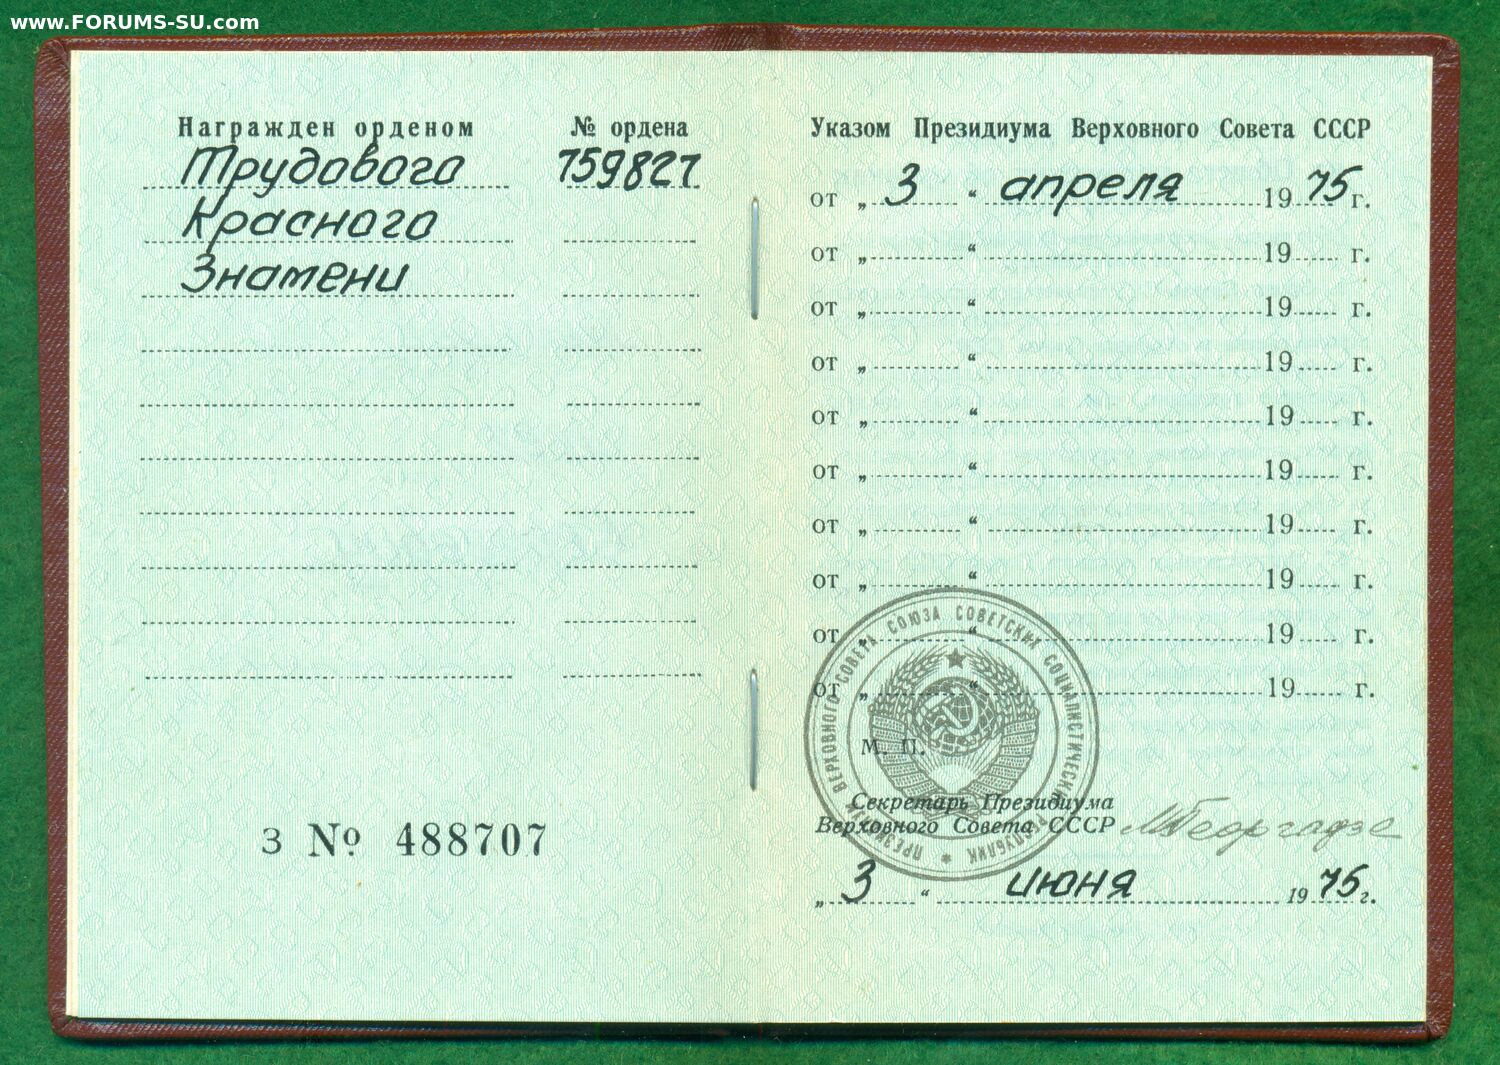 www.FORUMS-SU.com
Награжден орденом
№ ордена
Трудового
759827
Красного
Знамени
З № 488707
Указом Президиума Верховного Совета СССР
от „ 3 “ апреля 1975 г.
от „ “ 19 г.
от „ “ 19 г.
от „ “ 19 г.
от „ “ 19 г.
от „ “ 19 г.
от „ “ 19 г.
от „ “ 19 г.
от „ “ 19 г.
от „ “ 19 г.
М. П.
Секретарь Президиума
Верховного Совета СССР
МГеоргадзе
„ 3 “ июня 1975 г.
ПРЕЗИДИУМ ВЕРХОВНОГО СОВЕТА СОЮЗА СОВЕТСКИХ СОЦИАЛИСТИЧЕСКИХ РЕСПУБЛИК